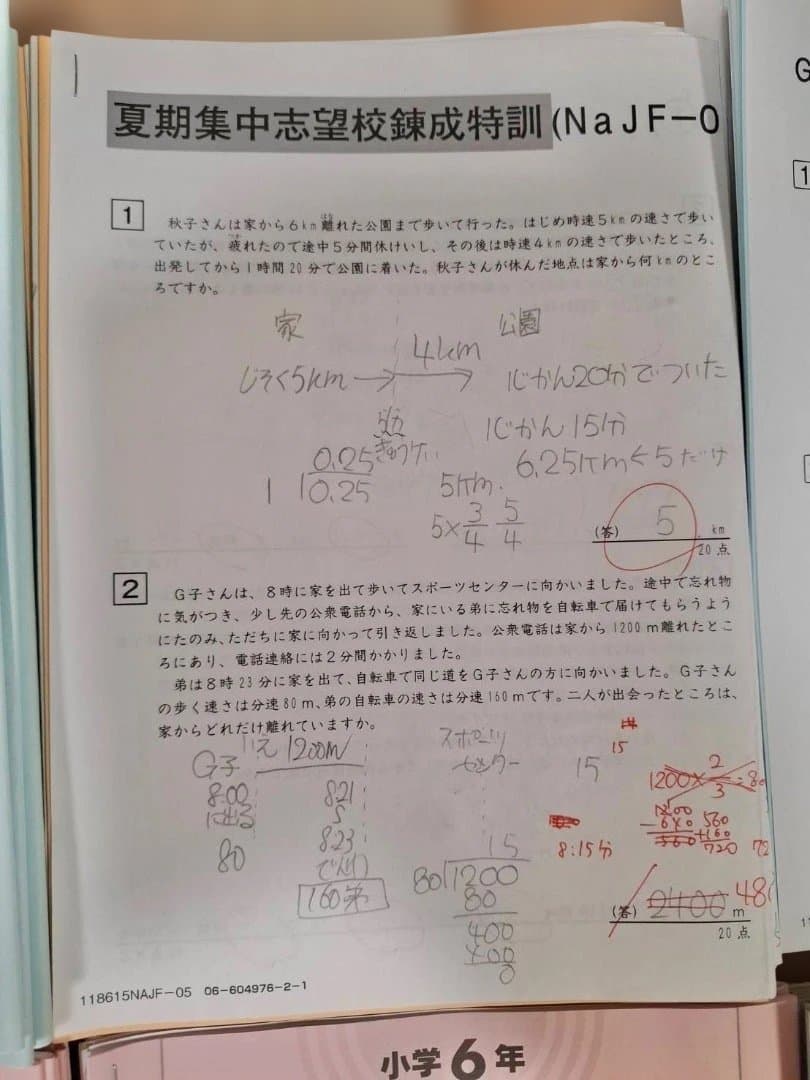 夏期集中志望校錬成特訓(NaJF-0
1
秋子さんは家から6km離れた公園まで歩いて行った。はじめ時速5kmの速さで歩い
ていたが、疲れたので途中5分間休けいし、その後は時速4kmの速さで歩いたところ、
出発してから1時間20分で公園に着いた。秋子さんが休んだ地点は家から何kmのとこ
ろですか。
家
公園
4km
じそく5km
1じかん20分でついた
きゅうけい
1じかん15分
0.25
6.25km<5だけ
1
0.25
5km.
5×3/4 5/4
(答) 5 km
20点
2
G子さんは、8時に家を出て歩いてスポーツセンターに向かいました。途中で忘れ物
に気がつき、少し先の公衆電話から、家にいる弟に忘れ物を自転車で届けてもらうよう
にたのみ、ただちに家に向かって引き返しました。公衆電話は家から1200m離れたとこ
ろにあり、電話連絡には2分間かかりました。
弟は8時23分に家を出て、自転車で同じ道をG子さんの方に向かいました。G子さん
の歩く速さは分速80m、弟の自転車の速さは分速160mです。二人が出会ったところは、
家からどれだけ離れていますか。
いえ 1200m
スポーツ
センター
G子
15
15
1200×2/3=80
8:00
に出る
821
823
でんわ
80
160弟
8:15分
1200
-640
560
560
+160
720
72
15
80)1200
80
400
400
0
(答) 2400 m
48
20点
118615NAJF-05 06-604976-2-1
小学6年
G
1
11